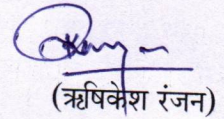 (ऋषिकेश रंजन)